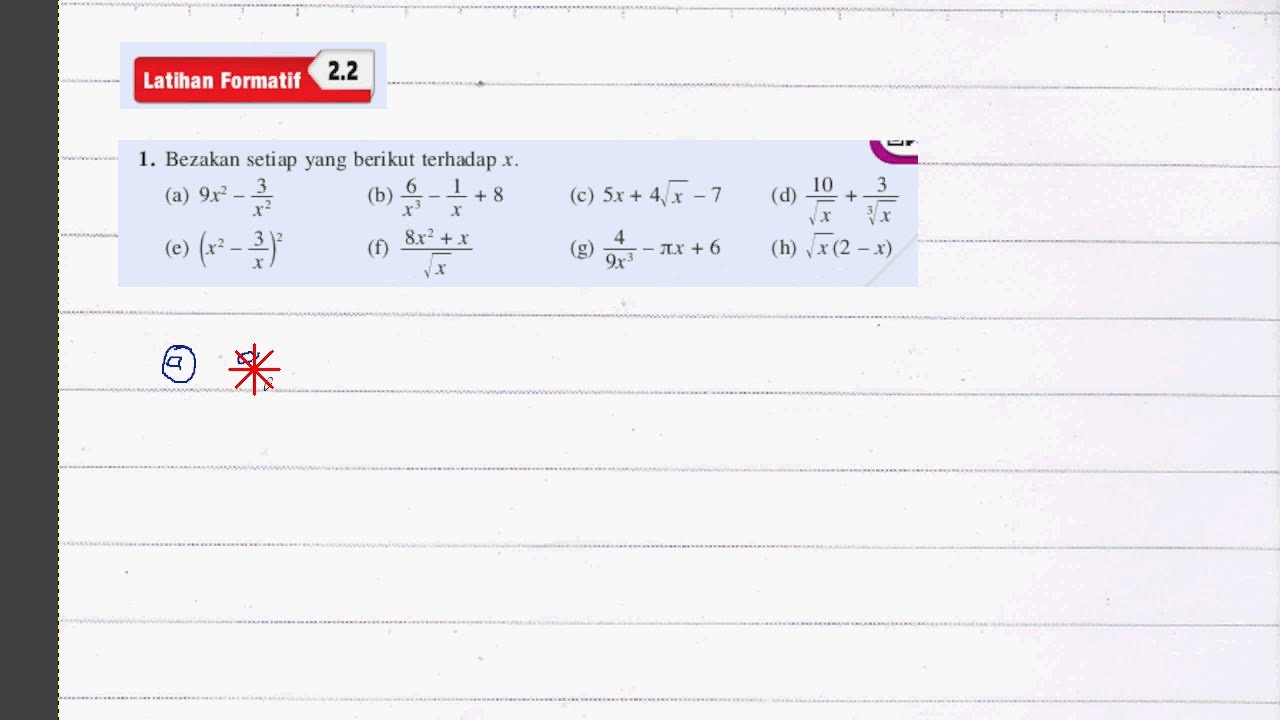 Latihan Formatif 2.2
1. Bezakan setiap yang berikut terhadap x.
(a) 9x² – 3/x² (b) 6/x³ – 1/x + 8 (c) 5x + 4√x – 7 (d) 10/√x + 3/∛x
(e) (x² – 3/x)² (f) (8x² + x)/√x (g) 4/9x³ – πx + 6 (h) √x(2 – x)
a